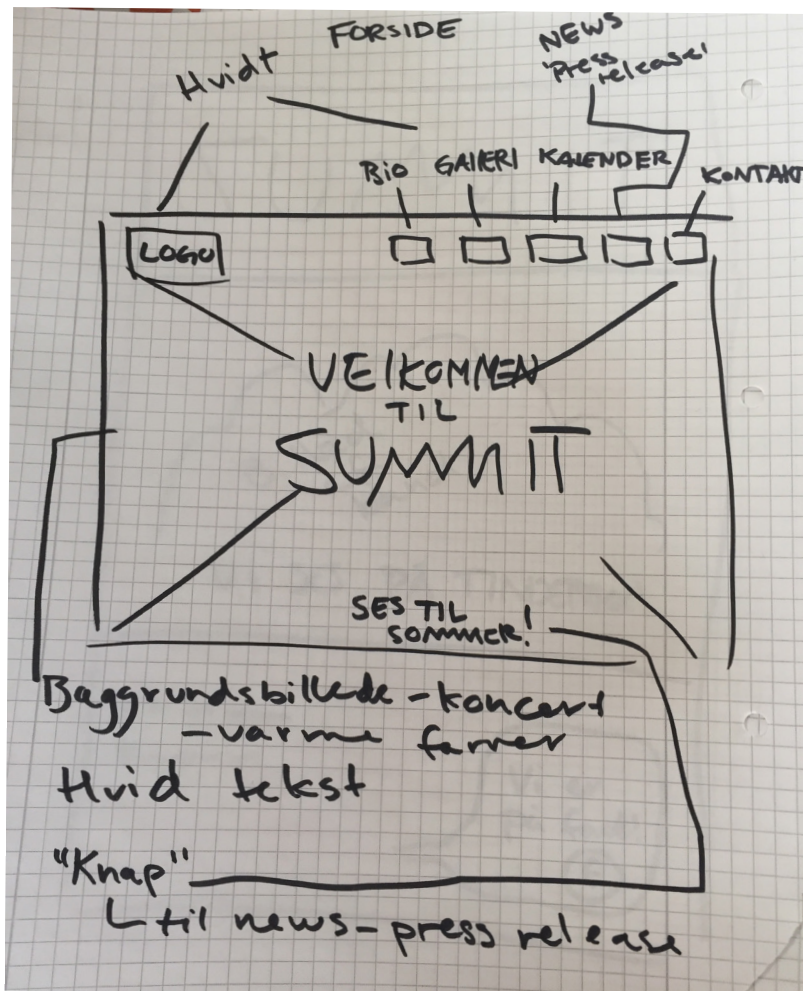 FORSIDE
Hvidt
NEWS
'Press
release'
BIO GALLERI KALENDER
KONTAKT
LOGO
VELKOMMEN
TIL
SUMMIT
SES TIL
SOMMER!
Baggrundsbillede - koncert
- varme farver
Hvid tekst
"Knap"
til news - press release